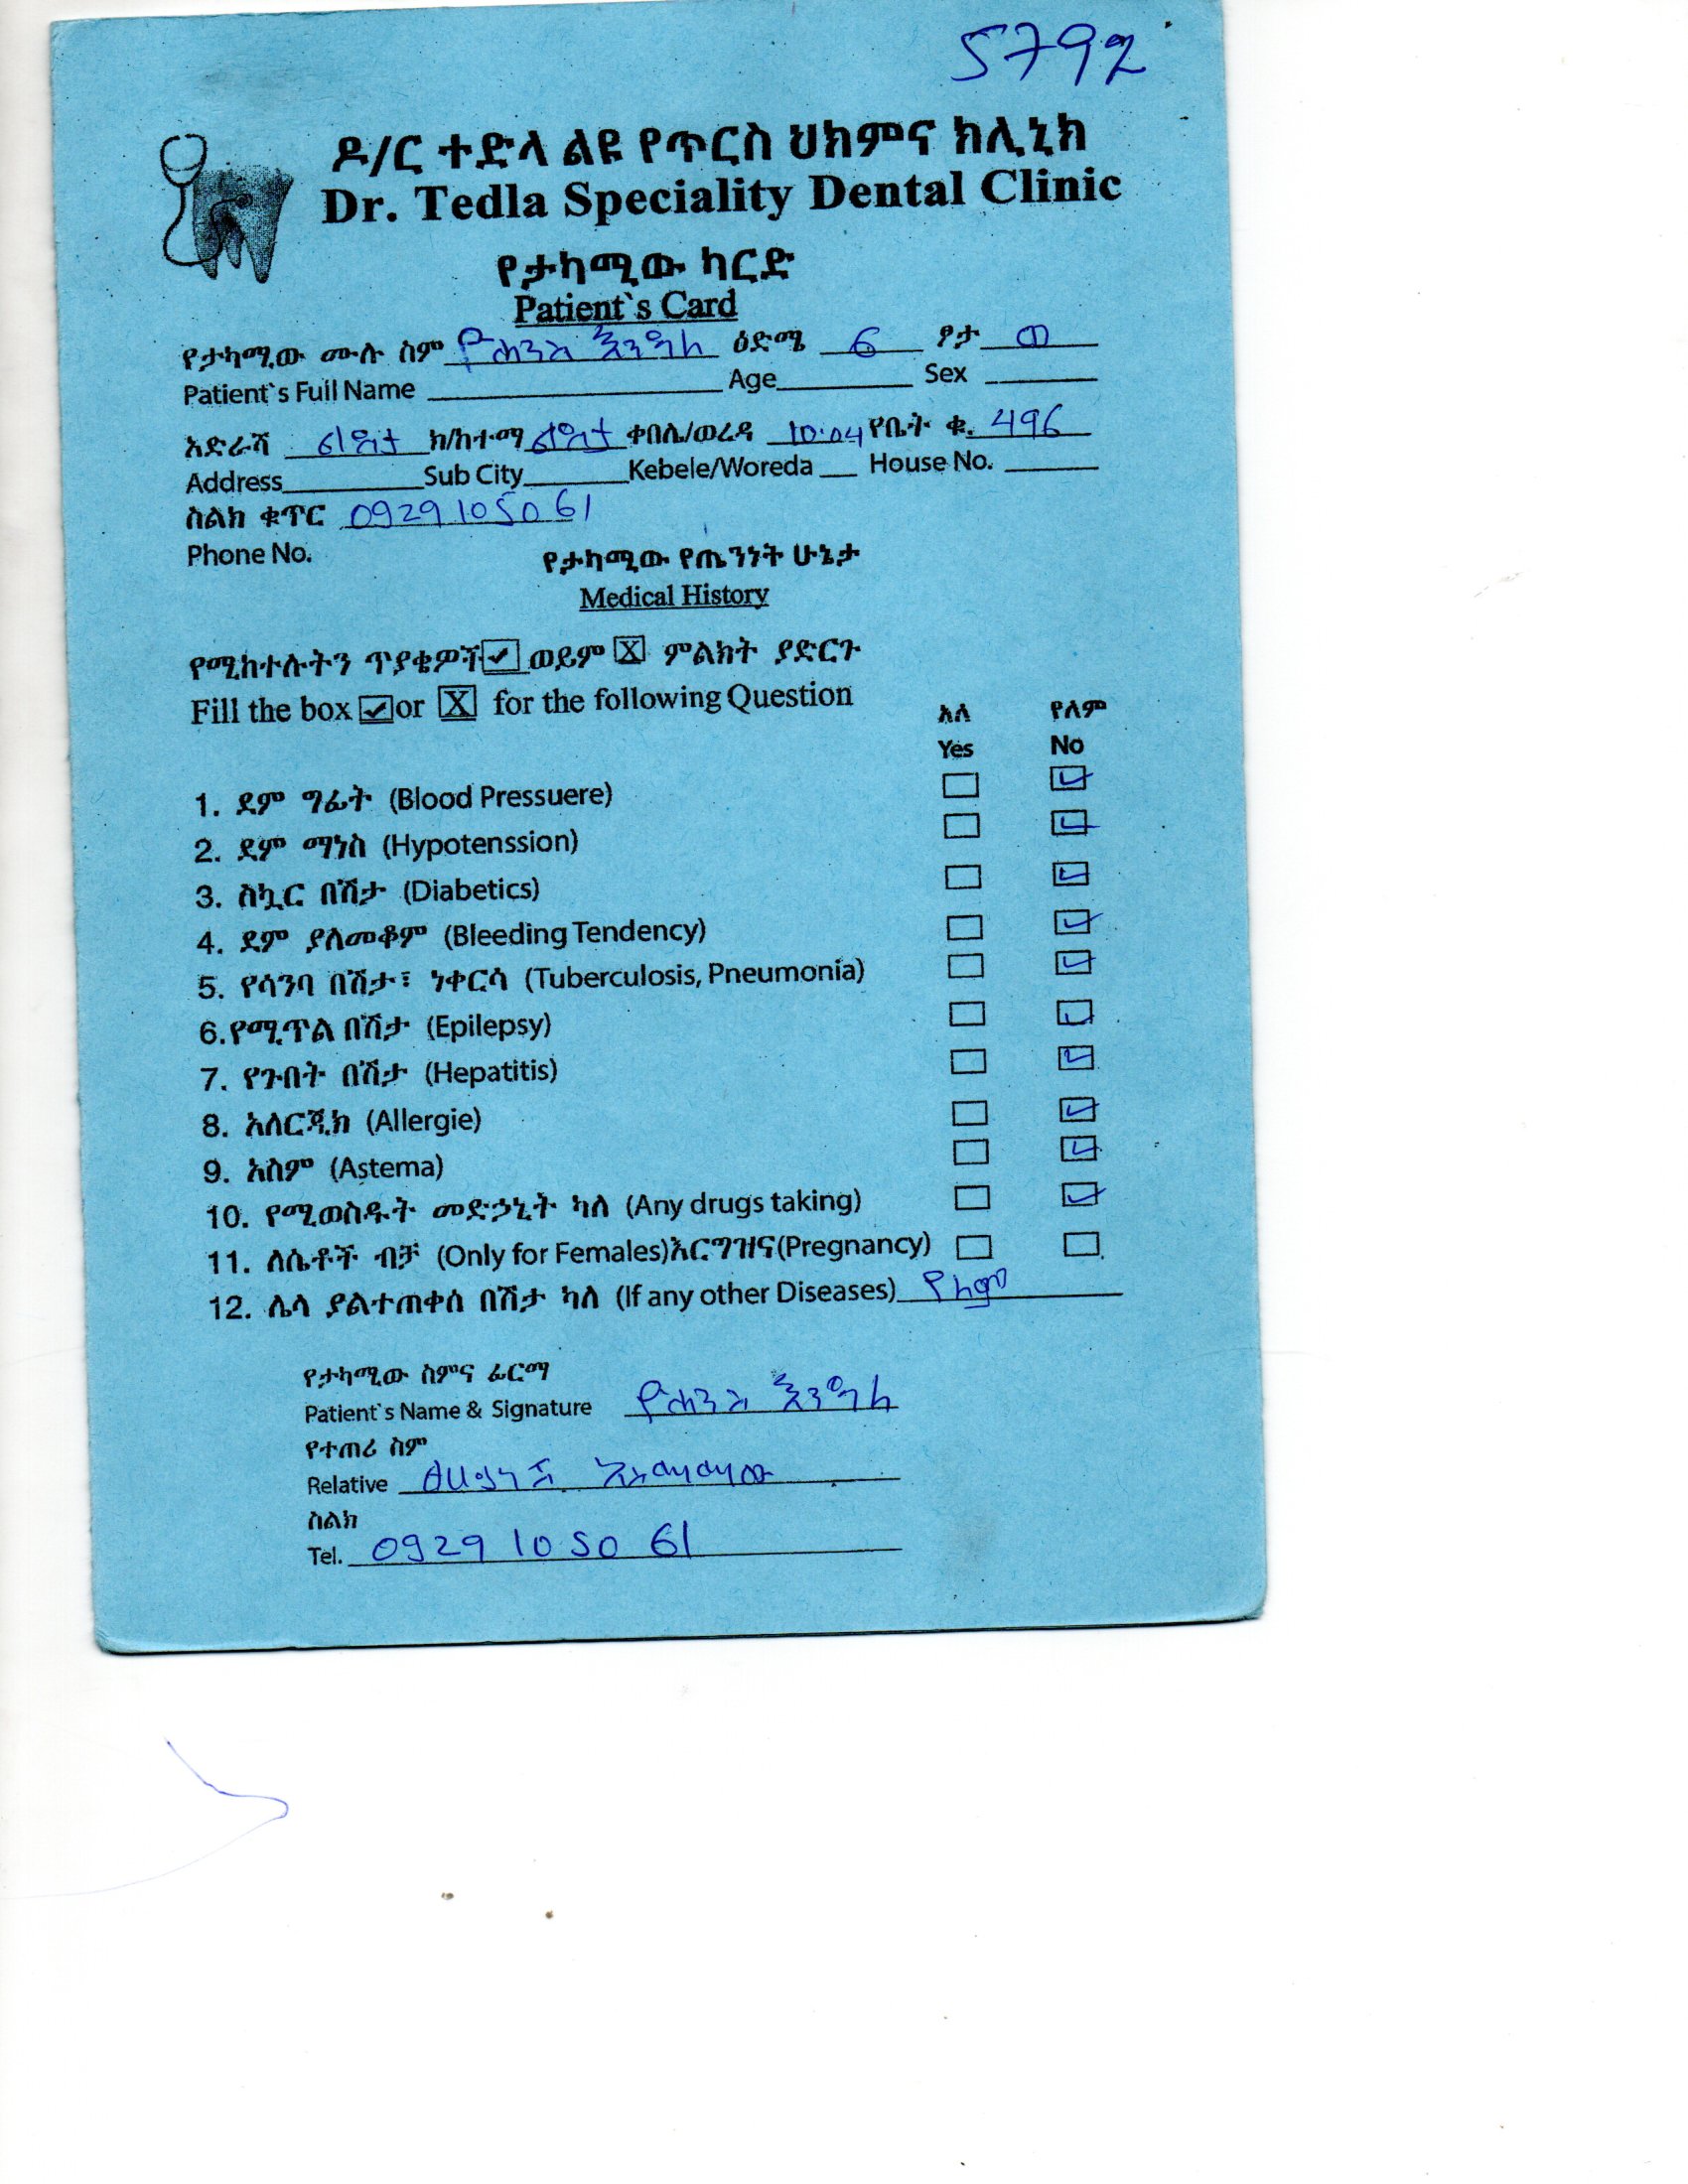 5792
ዶ/ር ተድላ ልዩ የጥርስ ህክምና ክሊኒክ
Dr. Tedla Speciality Dental Clinic
የታካሚው ካርድ
Patient`s Card
የታካሚው ሙሉ ስም ዮሐንስ እንዳለ ዕድሜ 6 ፆታ ወ
Patient`s Full Name Age Sex
አድራሻ ልደታ ክ/ከተማ ልደታ ቀበሌ/ወረዳ 10.04 የቤት ቁ. 496
Address Sub City Kebele/Woreda House No.
ስልክ ቁጥር 0929105061
Phone No.
የታካሚው የጤንነት ሁኔታ
Medical History
የሚከተሉትን ጥያቄዎች ✓ ወይም X ምልክት ያድርጉ
Fill the box ✓ or X for the following Question
አለ የለም
Yes No
1. ደም ግፊት (Blood Pressuere) ✓
2. ደም ማነስ (Hypotenssion) ✓
3. ስኳር በሽታ (Diabetics) ✓
4. ደም ያለመቆም (Bleeding Tendency) ✓
5. የሳንባ በሽታ፣ ነቀርሳ (Tuberculosis, Pneumonia) ✓
6.የሚጥል በሽታ (Epilepsy) ✓
7. የጉበት በሽታ (Hepatitis) ✓
8. አለርጂክ (Allergie) ✓
9. አስም (Astema) ✓
10. የሚወስዱት መድኃኒት ካለ (Any drugs taking) ✓
11. ለሴቶች ብቻ (Only for Females)እርግዝና(Pregnancy)
12. ሌላ ያልተጠቀሰ በሽታ ካለ (If any other Diseases) የለም
የታካሚው ስምና ፊርማ
Patient`s Name & Signature ዮሐንስ እንዳለ
የተጠሪ ስም
Relative
ስልክ
Tel. 0929 10 50 61